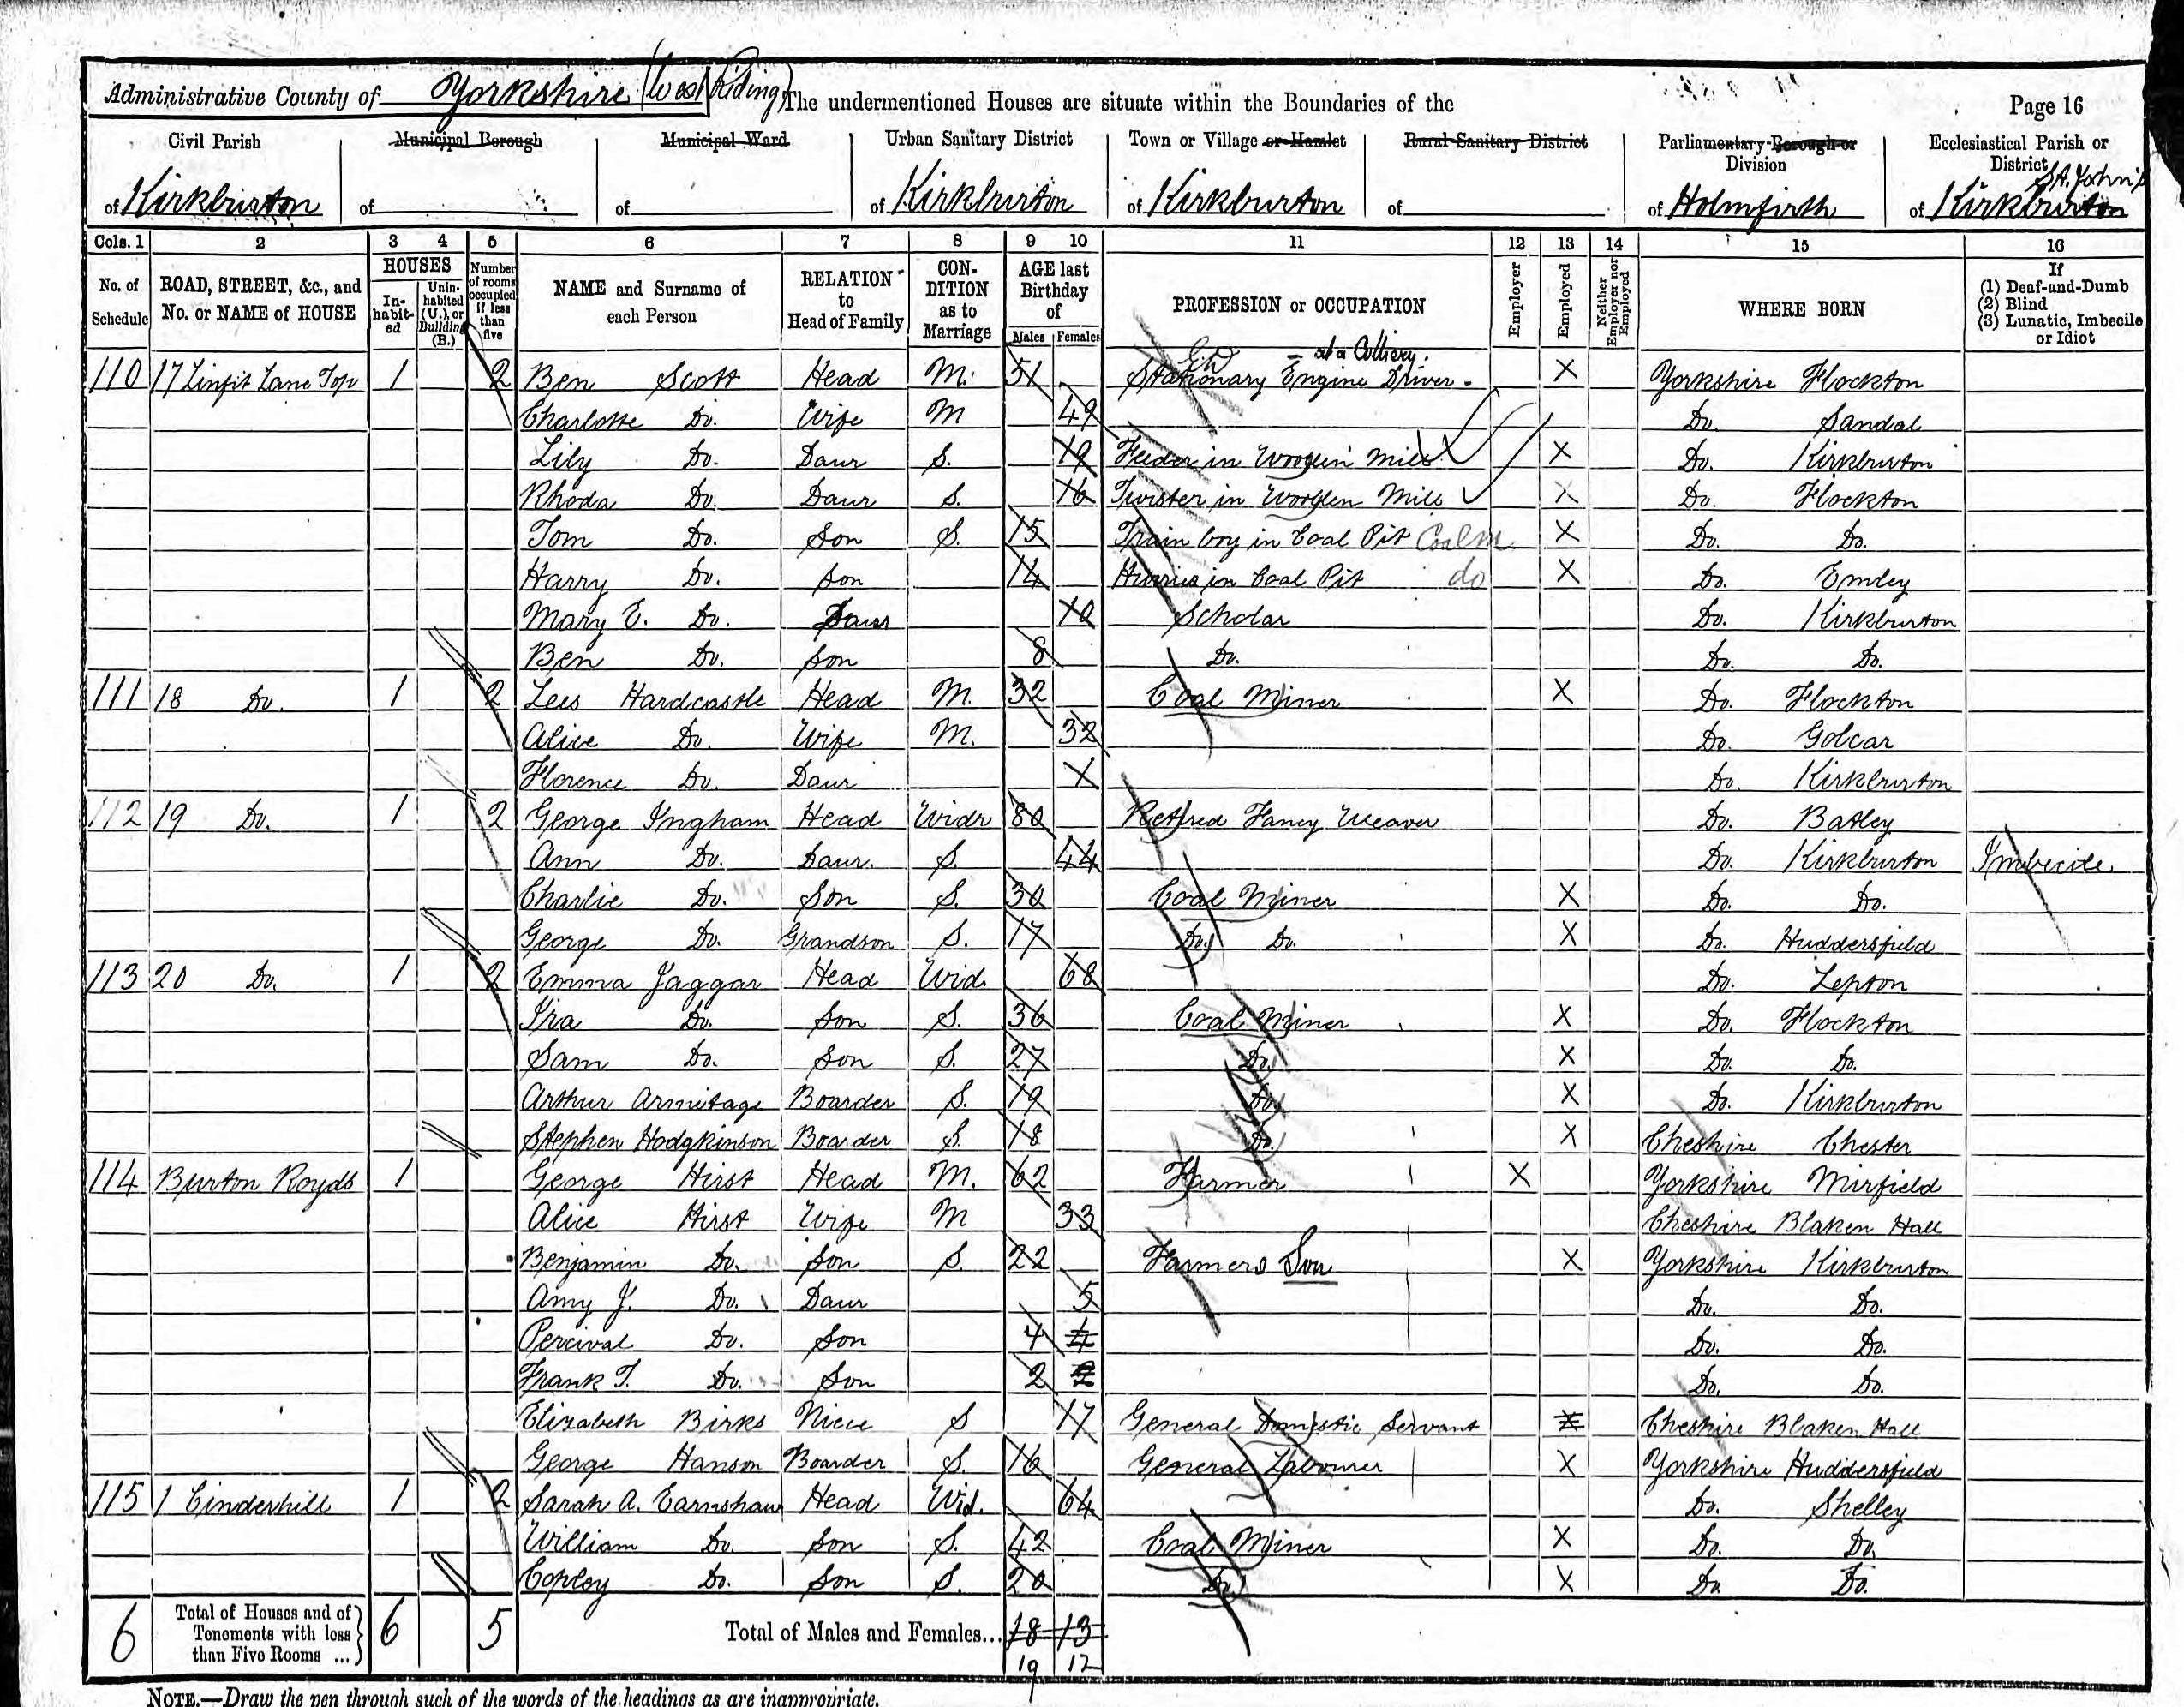 Administrative County of Yorkshire (West Riding) The undermentioned Houses are situate within the Boundaries of the Page 16
Civil Parish Municipal Borough Municipal Ward Urban Sanitary District Town or Village or Hamlet Rural Sanitary District Parliamentary Borough or Division Ecclesiastical Parish or District
of Kirkburton of of of Kirkburton of Kirkburton of of Holmfirth of St. John's Kirkburton
Cols. 1 2 3 4 5 6 7 8 9 10 11 12 13 14 15 16
No. of Schedule ROAD, STREET, &c., and No. or NAME of HOUSE HOUSES In-habit-ed Unin-habited (U.), or Building (B.) Number of rooms occupied if less than five NAME and Surname of each Person RELATION to Head of Family CON-DITION as to Marriage AGE last Birthday of Males Females PROFESSION or OCCUPATION Employer Employed Neither Employer nor Employed WHERE BORN If (1) Deaf-and-Dumb (2) Blind (3) Lunatic, Imbecile or Idiot
110 17 Linfit Lane Top 1 2 Ben Scott Head M. 51 Stationary Engine Driver - at a Colliery. X Yorkshire Flockton
Charlotte Do. Wife M 49 Do. Sandal
Lily Do. Daur S. 19 Feeder in Woollen Mill X Do. Kirkburton
Rhoda Do. Daur S. 16 Twister in Woollen Mill X Do. Flockton
Tom Do. Son S. 15 Train boy in Coal Pit Coal m X Do. Do.
Harry Do. Son 14 Hurrier in Coal Pit do X Do. Emley
Mary E. Do. Daur 10 Scholar Do. Kirkburton
Ben Do. Son 8 Do. Do. Do.
111 18 Do. 1 2 Lees Hardcastle Head M. 32 Coal Miner X Do. Flockton
Alice Do. Wife M. 32 Do. Golcar
Florence Do. Daur Do. Kirkburton
112 19 Do. 1 2 George Ingham Head Widr 80 Retired Fancy Weaver Do. Batley
Ann Do. Daur. S. 44 Do. Kirkburton Imbecile
Charlie Do. Son S. 30 Coal Miner X Do. Do.
George Do. Grandson S. 17 Do. Do. X Do. Huddersfield
113 20 Do. 1 2 Emma Jaggar Head Wid. 68 Do. Lepton
Ira Do. Son S. 36 Coal Miner X Do. Flockton
Sam Do. Son S. 27 Do. X Do. Do.
Arthur Armitage Boarder S. 19 Do. X Do. Kirkburton
Stephen Hodgkinson Boarder S. 18 Do. X Cheshire Chester
114 Burton Royds 1 George Hirst Head M. 62 Farmer X Yorkshire Mirfield
Alice Hirst Wife M 33 Cheshire Blaken Hall
Benjamin Do. Son S. 22 Farmers Son X Yorkshire Kirkburton
Amy J. Do. Daur 5 Do. Do.
Percival Do. Son 4 4 Do. Do.
Frank T. Do. Son 2 2 Do. Do.
Elizabeth Birks Niece S 17 General Domestic Servant X Cheshire Blaken Hall
George Hanson Boarder S. 16 General Labourer X Yorkshire Huddersfield
115 1 Cinderhill 1 2 Sarah A. Earnshaw Head Wid. 64 Do. Shelley
William Do. Son S. 42 Coal Miner X Do. Do.
Copley Do. Son S. 20 Do. X Do. Do.
6 Total of Houses and of Tenements with less than Five Rooms ... 6 5 Total of Males and Females... 18 13
19 12
NOTE.—Draw the pen through such of the words of the headings as are inappropriate.